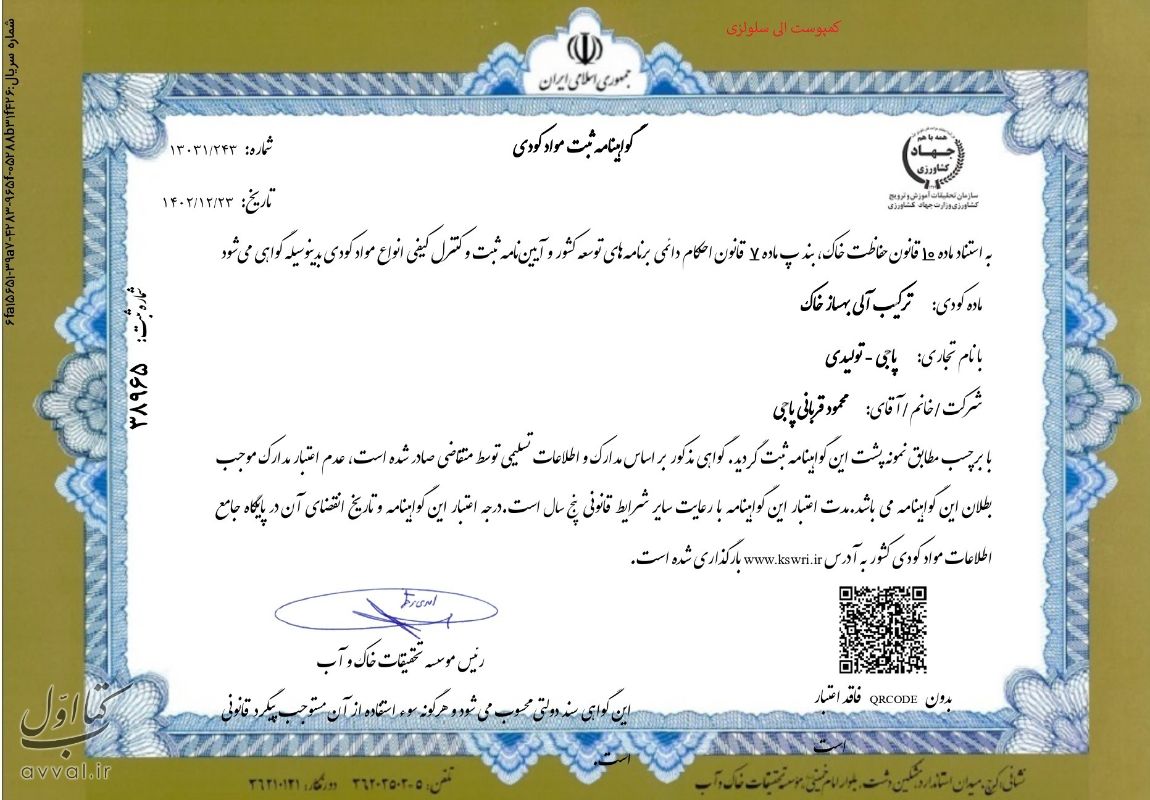 کمپوست الی سلولزی
جمهوری اسلامی ایران
همه با هم
جهاد
کشاورزی
سازمان تحقیقات آموزش و ترویج
کشاورزی وزارت جهاد کشاورزی
گواهینامه ثبت مواد کودی
شماره: ۱۳۰۳۱/۲۴۳
تاریخ: ۱۴۰۲/۱۲/۲۳
به استناد ماده ۱۰ قانون حفاظت خاک، بند پ ماده ۷ قانون احکام دائمی برنامه های توسعه کشور و آیین نامه ثبت و کنترل کیفی انواع مواد کودی بدینوسیله گواهی می شود
ماده کودی: ترکیب آلی بهساز خاک
با نام تجاری: پاجی - تولیدی
شرکت / خانم / آقای: محمود قربانی پاجی
با برچسب مطابق نمونه پشت این گواهینامه ثبت گردید. گواهی مذکور بر اساس مدارک و اطلاعات تسلیمی توسط متقاضی صادر شده است، عدم اعتبار مدارک موجب
بطلان این گواهینامه می باشد. مدت اعتبار این گواهینامه با رعایت سایر شرایط قانونی پنج سال است. درجه اعتبار این گواهینامه و تاریخ انقضای آن در پایگاه جامع
اطلاعات مواد کودی کشور به آدرس www.kswri.ir بارگذاری شده است.
رئیس موسسه تحقیقات خاک و آب
بدون QRCODE فاقد اعتبار
است
این گواهی سند دولتی محسوب می شود و هرگونه سوء استفاده از آن مستوجب پیگرد قانونی
است.
نشانی: کرج، میدان استاندارد، مشکین دشت، بلوار امام خمینی، مؤسسه تحقیقات خاک و آب
تلفن: ۵-۳۶۲۰۳۵۰۲ دورنگار: ۳۶۲۱۰۱۲۱
شماره ثبت: ۳۸۹۶۵
شماره سریال:
کتاب اول
avval.ir